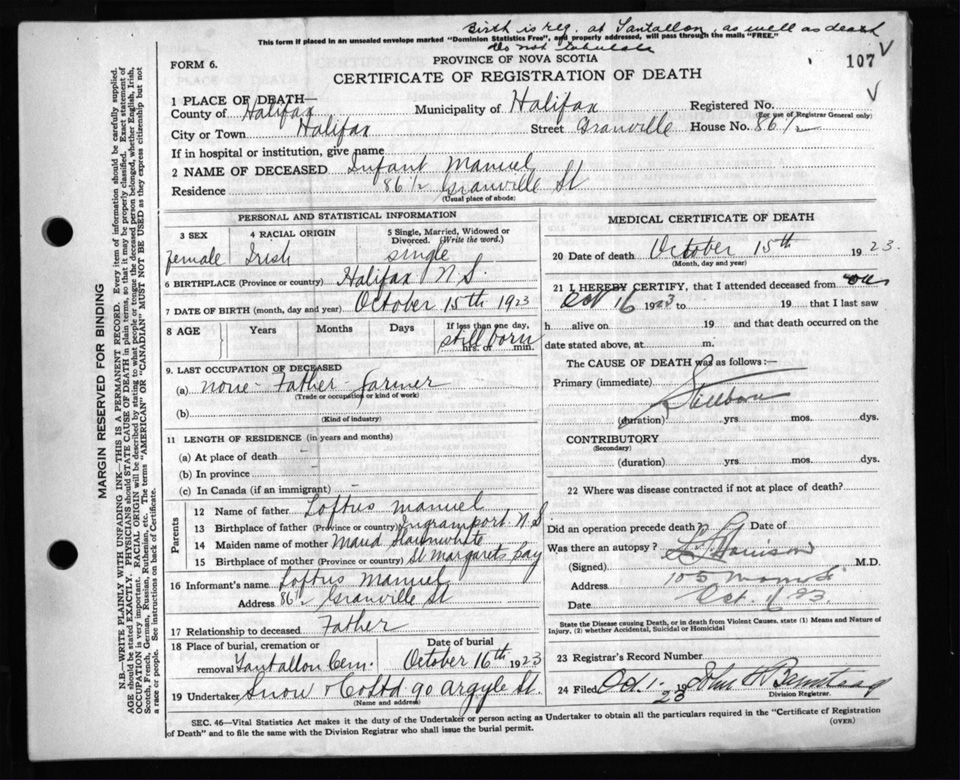 Birth is reg. at Tantallon, as well as death
This form if placed in an unsealed envelope marked "Dominion Statistics Free", and properly addressed, will pass through the mails "FREE."
do not tabulate
FORM 6.
PROVINCE OF NOVA SCOTIA
107
CERTIFICATE OF REGISTRATION OF DEATH
1 PLACE OF DEATH—
County of Halifax Municipality of Halifax Registered No.
(For use of Registrar General only)
City or Town Halifax Street Granville House No. 86 1/2
If in hospital or institution, give name
2 NAME OF DECEASED Infant Manuel
Residence 86 1/2 Granville St
(Usual place of abode)
PERSONAL AND STATISTICAL INFORMATION
3 SEX 4 RACIAL ORIGIN 5 Single, Married, Widowed or Divorced. (Write the word.)
female Irish single
6 BIRTHPLACE (Province or country) Halifax N.S.
7 DATE OF BIRTH (month, day and year) October 15th 1923
8 AGE Years Months Days If less than one day,
stillborn
hrs. or min.
9. LAST OCCUPATION OF DECEASED
(a) none - Father - farmer
(Trade or occupation or kind of work)
(b)
(Kind of industry)
11 LENGTH OF RESIDENCE (in years and months)
(a) At place of death
(b) In province
(c) In Canada (if an immigrant)
Parents
12 Name of father Loftus Manuel
13 Birthplace of father (Province or country) Ingramport. N S
14 Maiden name of mother Maud
15 Birthplace of mother (Province or country) St Margarets Bay
16 Informant's name Loftus Manuel
Address 86 1/2 Granville St
17 Relationship to deceased Father
18 Place of burial, cremation or removal Tantallon Cem. Date of burial October 16th 1923
19 Undertaker Snow & Co Ltd 90 Argyle St.
(Name and address)
MEDICAL CERTIFICATE OF DEATH
20 Date of death October 15th 1923.
(Month, day and year)
21 I HEREBY CERTIFY, that I attended deceased from on
Oct 16 1923 to 19 that I last saw
h alive on 19 and that death occurred on the
date stated above, at m.
The CAUSE OF DEATH was as follows:—
Primary (immediate) Stillborn
(duration) yrs mos. dys.
CONTRIBUTORY
(Secondary)
(duration) yrs mos. dys.
22 Where was disease contracted if not at place of death?
Did an operation precede death? Date of
Was there an autopsy?
(Signed) M.D.
Address 105
Date Oct. 16/23
State the Disease causing Death, or in death from Violent Causes, state (1) Means and Nature of
Injury, (2) whether Accidental, Suicidal or Homicidal
23 Registrar's Record Number
24 Filed Oct. 1923
Division Registrar.
SEC. 46—Vital Statistics Act makes it the duty of the Undertaker or person acting as Undertaker to obtain all the particulars required in the "Certificate of Registration
of Death" and to file the same with the Division Registrar who shall issue the burial permit.
(OVER)
MARGIN RESERVED FOR BINDING
N.B.—WRITE PLAINLY WITH UNFADING INK—THIS IS A PERMANENT RECORD. Every item of information should be carefully supplied.
AGE should be stated EXACTLY. PHYSICIANS should STATE CAUSE OF DEATH in plain terms, so that it may be properly classified. Exact statement of
OCCUPATION is very important. RACIAL ORIGIN will be described by stating to what people or tongue the deceased person belonged, whether English, Irish,
Scotch, French, German, Russian, Ruthenian, etc. The terms "AMERICAN" OR "CANADIAN" MUST NOT BE USED as they express citizenship but not
a race or people. See instructions on back of Certificate.